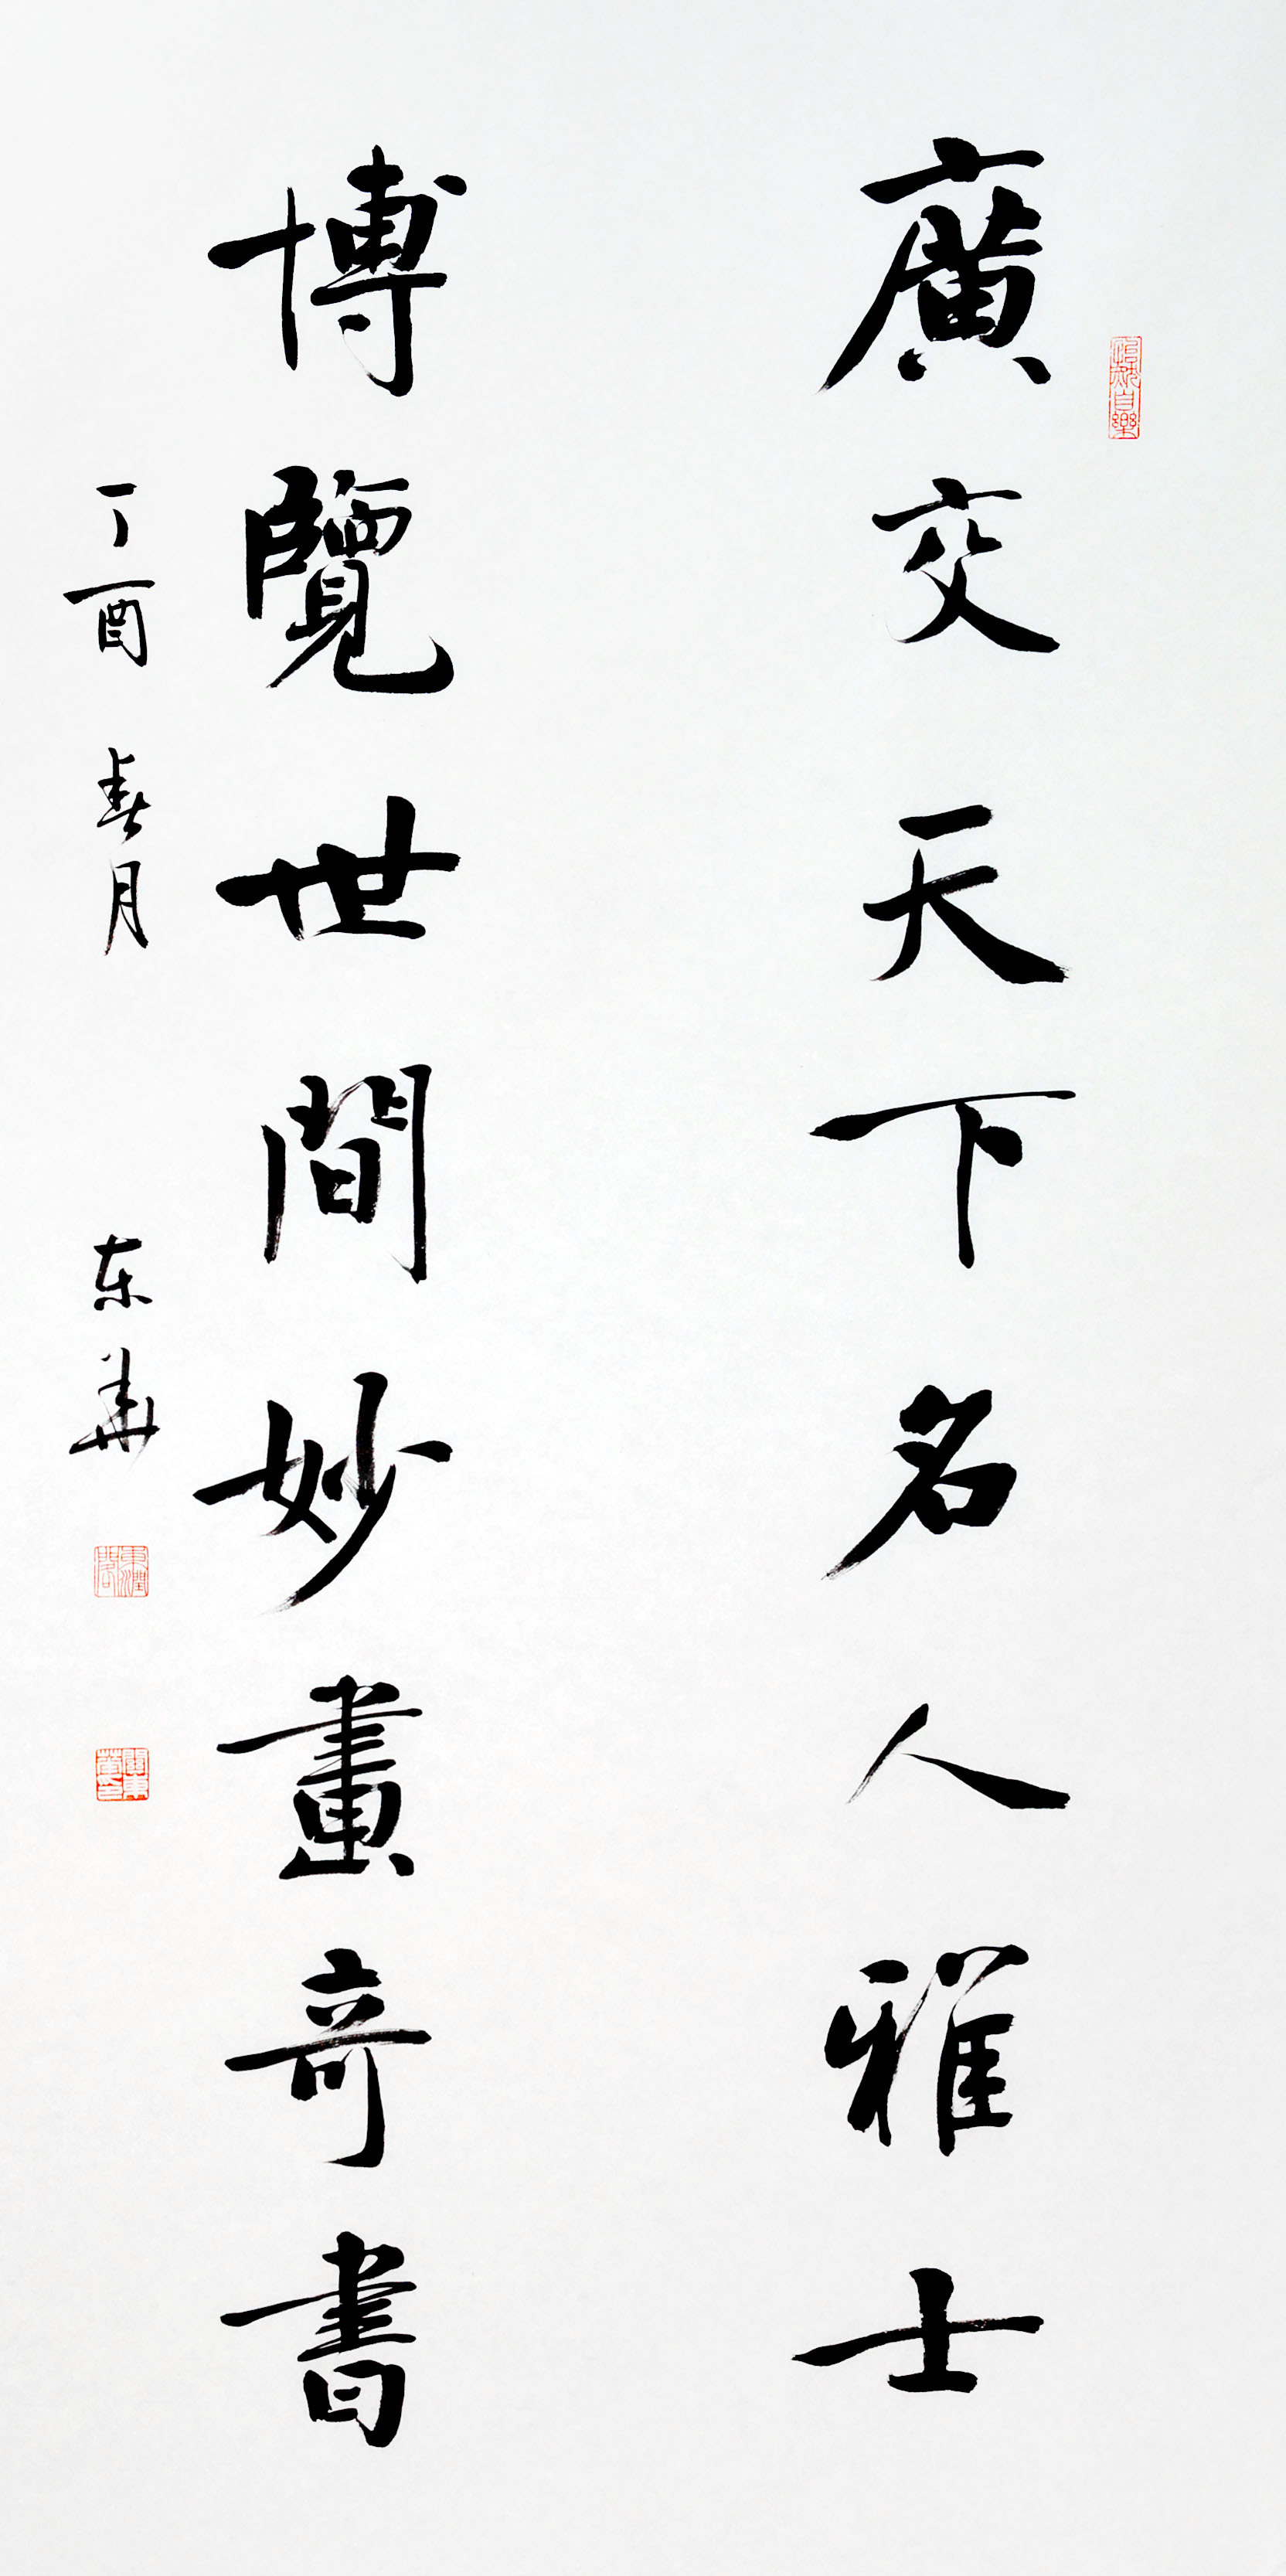 廣交天下名人雅士
博覽世間妙畫奇書
丁酉春月
东華